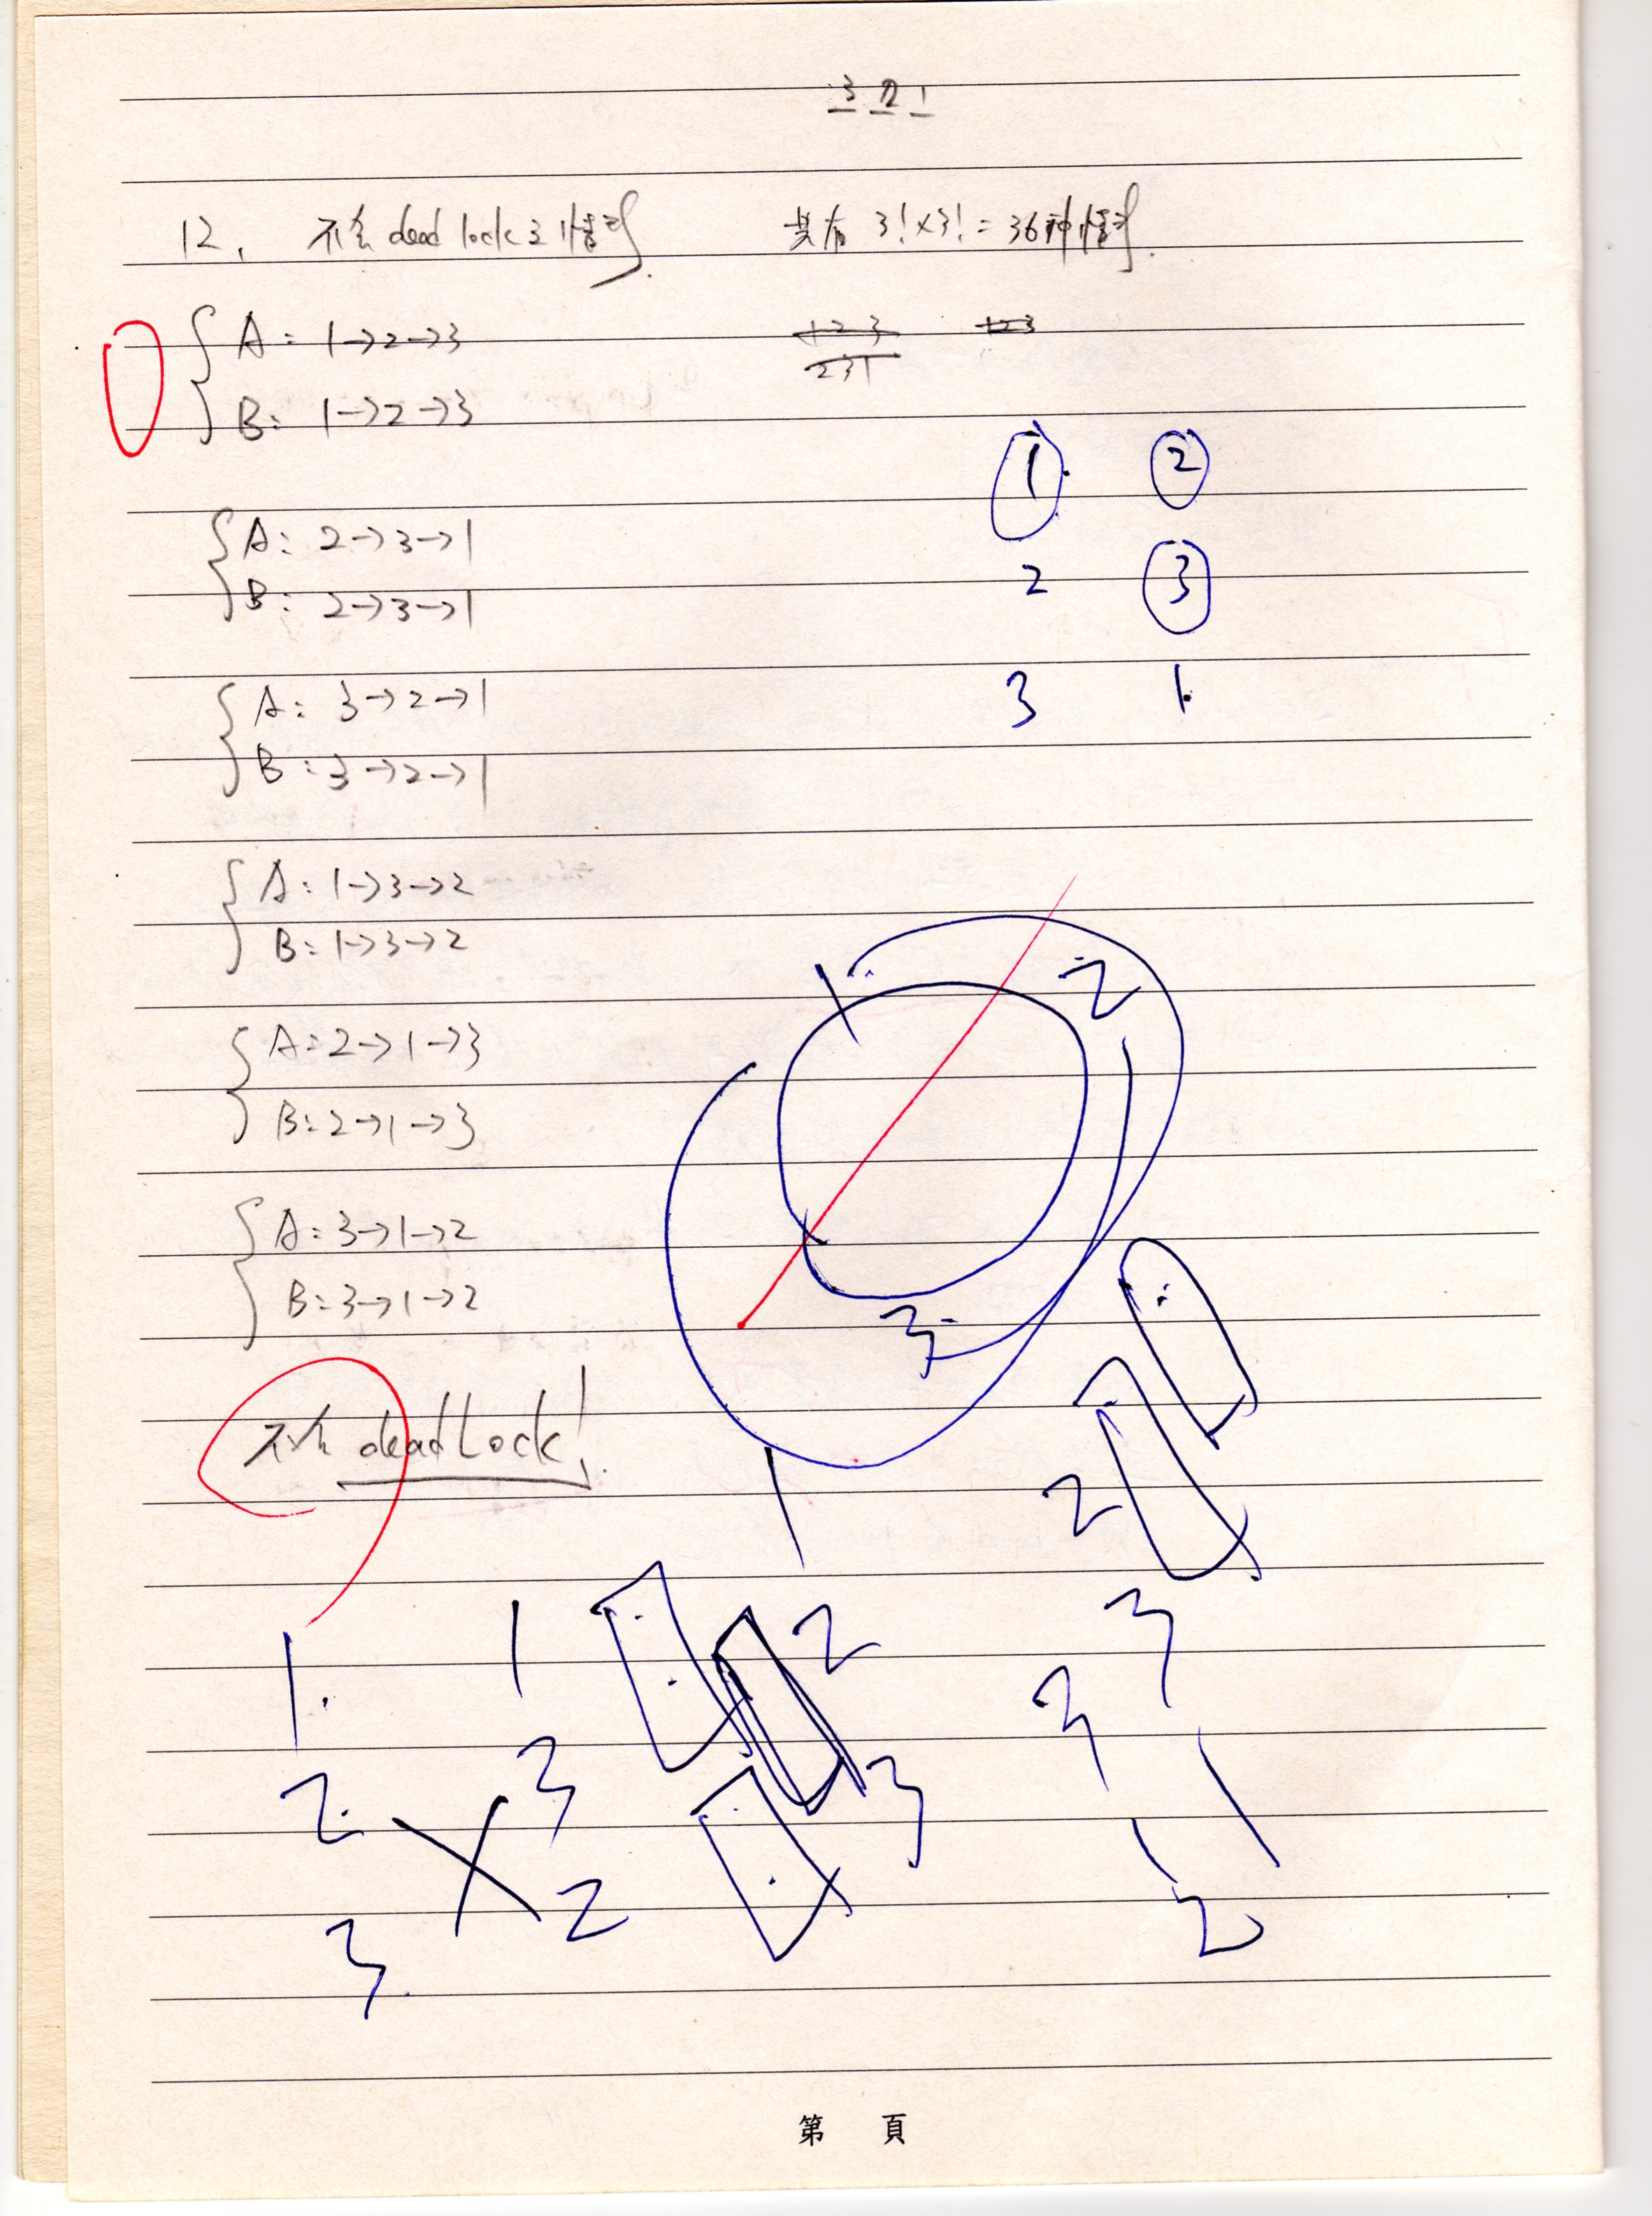 3 2 1
12. 不会 dead lock 之情形. 共有 3! x3! = 36种情形.
A: 1→2→3
B: 1→2→3
123 123
231
A: 2→3→1
B: 2→3→1
A: 3→2→1
B: 3→2→1
A: 1→3→2
B: 1→3→2
A: 2→1→3
B: 2→1→3
A: 3→1→2
B: 3→1→2
不会 deadlock!
1 2
2 3
3 1
1 2
3
1
2
3
1
3
2
1
2
3
1
3
2
2
3